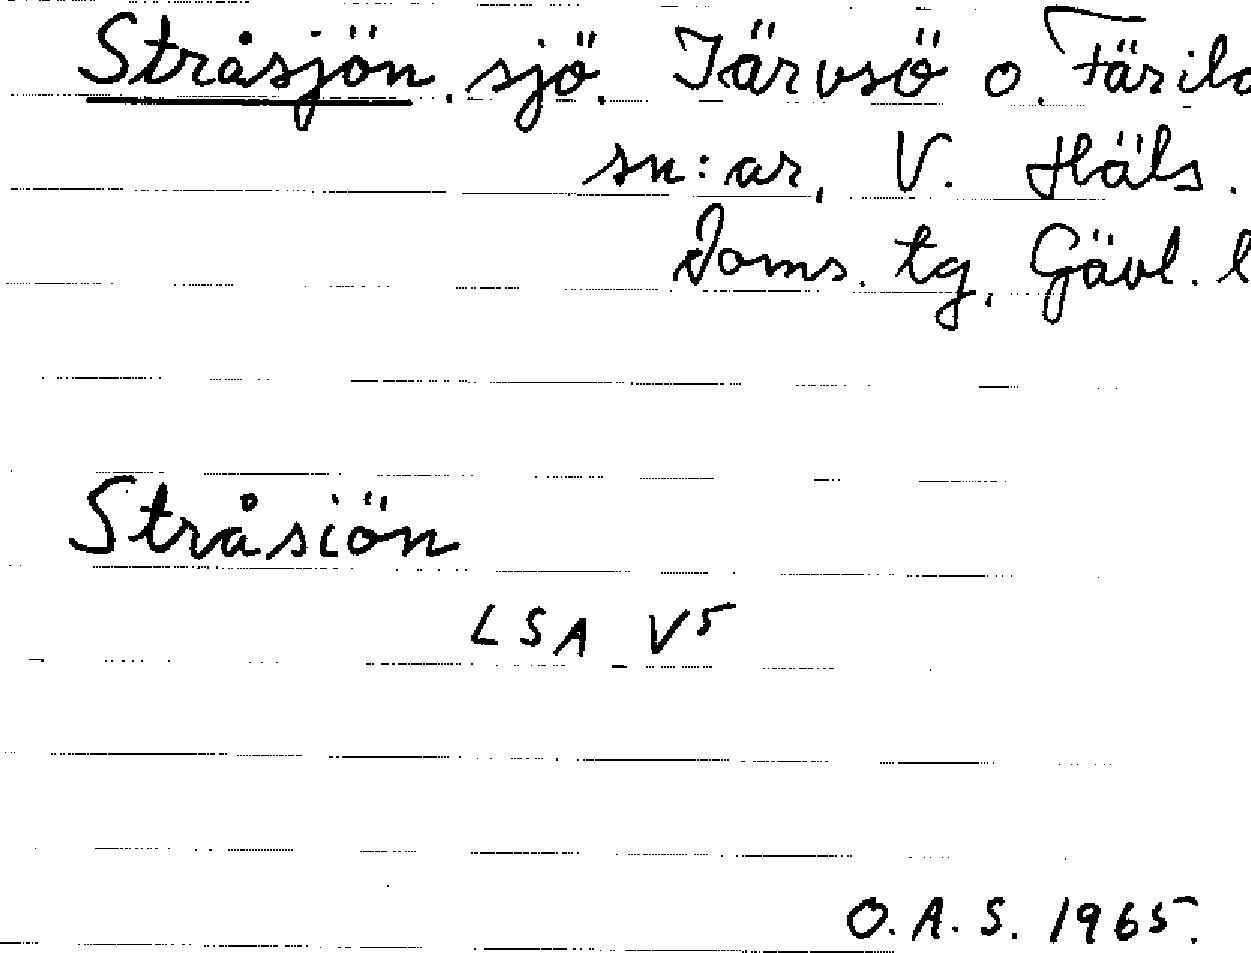 Stråsjön. sjö. Järvsö o. Färila
sn:ar, V. Häls.
Doms. tg, Gävl. l
Stråsiön
LSA V5
O.A.S. 1965.